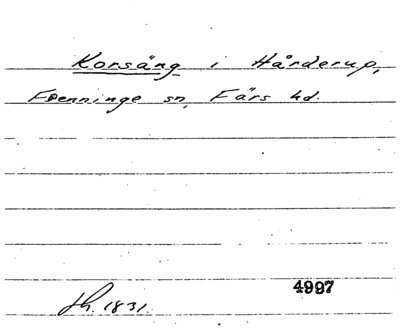 Korsäng i Hårderup,
Fränninge sn, Färs hd.
4997
sh. 1831.